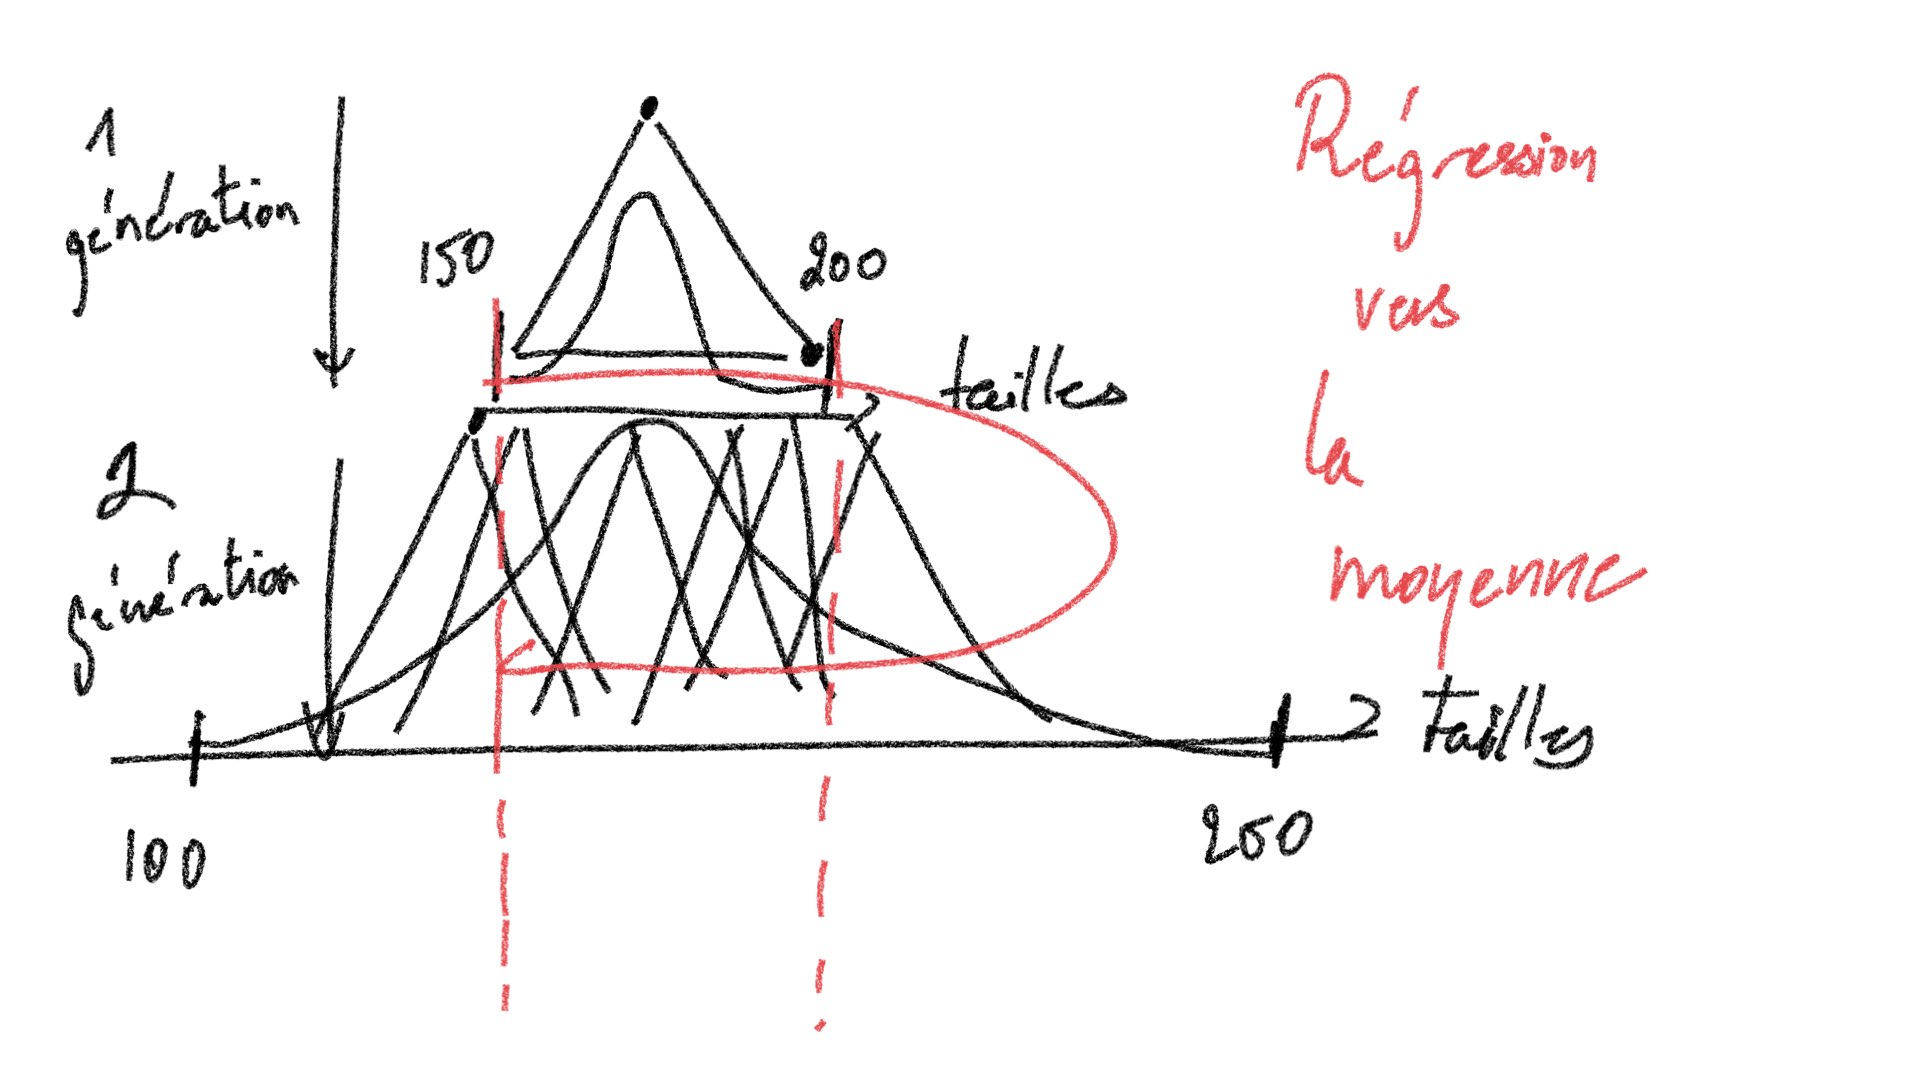 1
génération
150
200
tailles
2
génération
tailles
100
250
Régression
vers
la
moyenne